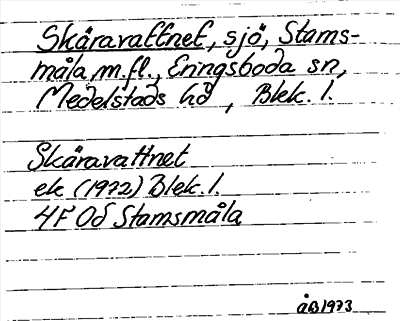 Skäravattnet, sjö, Stams-
måla m.fl., Eringsboda sn,
Medelstads hd, Blek. l.
Skäravattnet
ek (1972) Blek. l.
4F 0d Stamsmåla
ÅB 1973